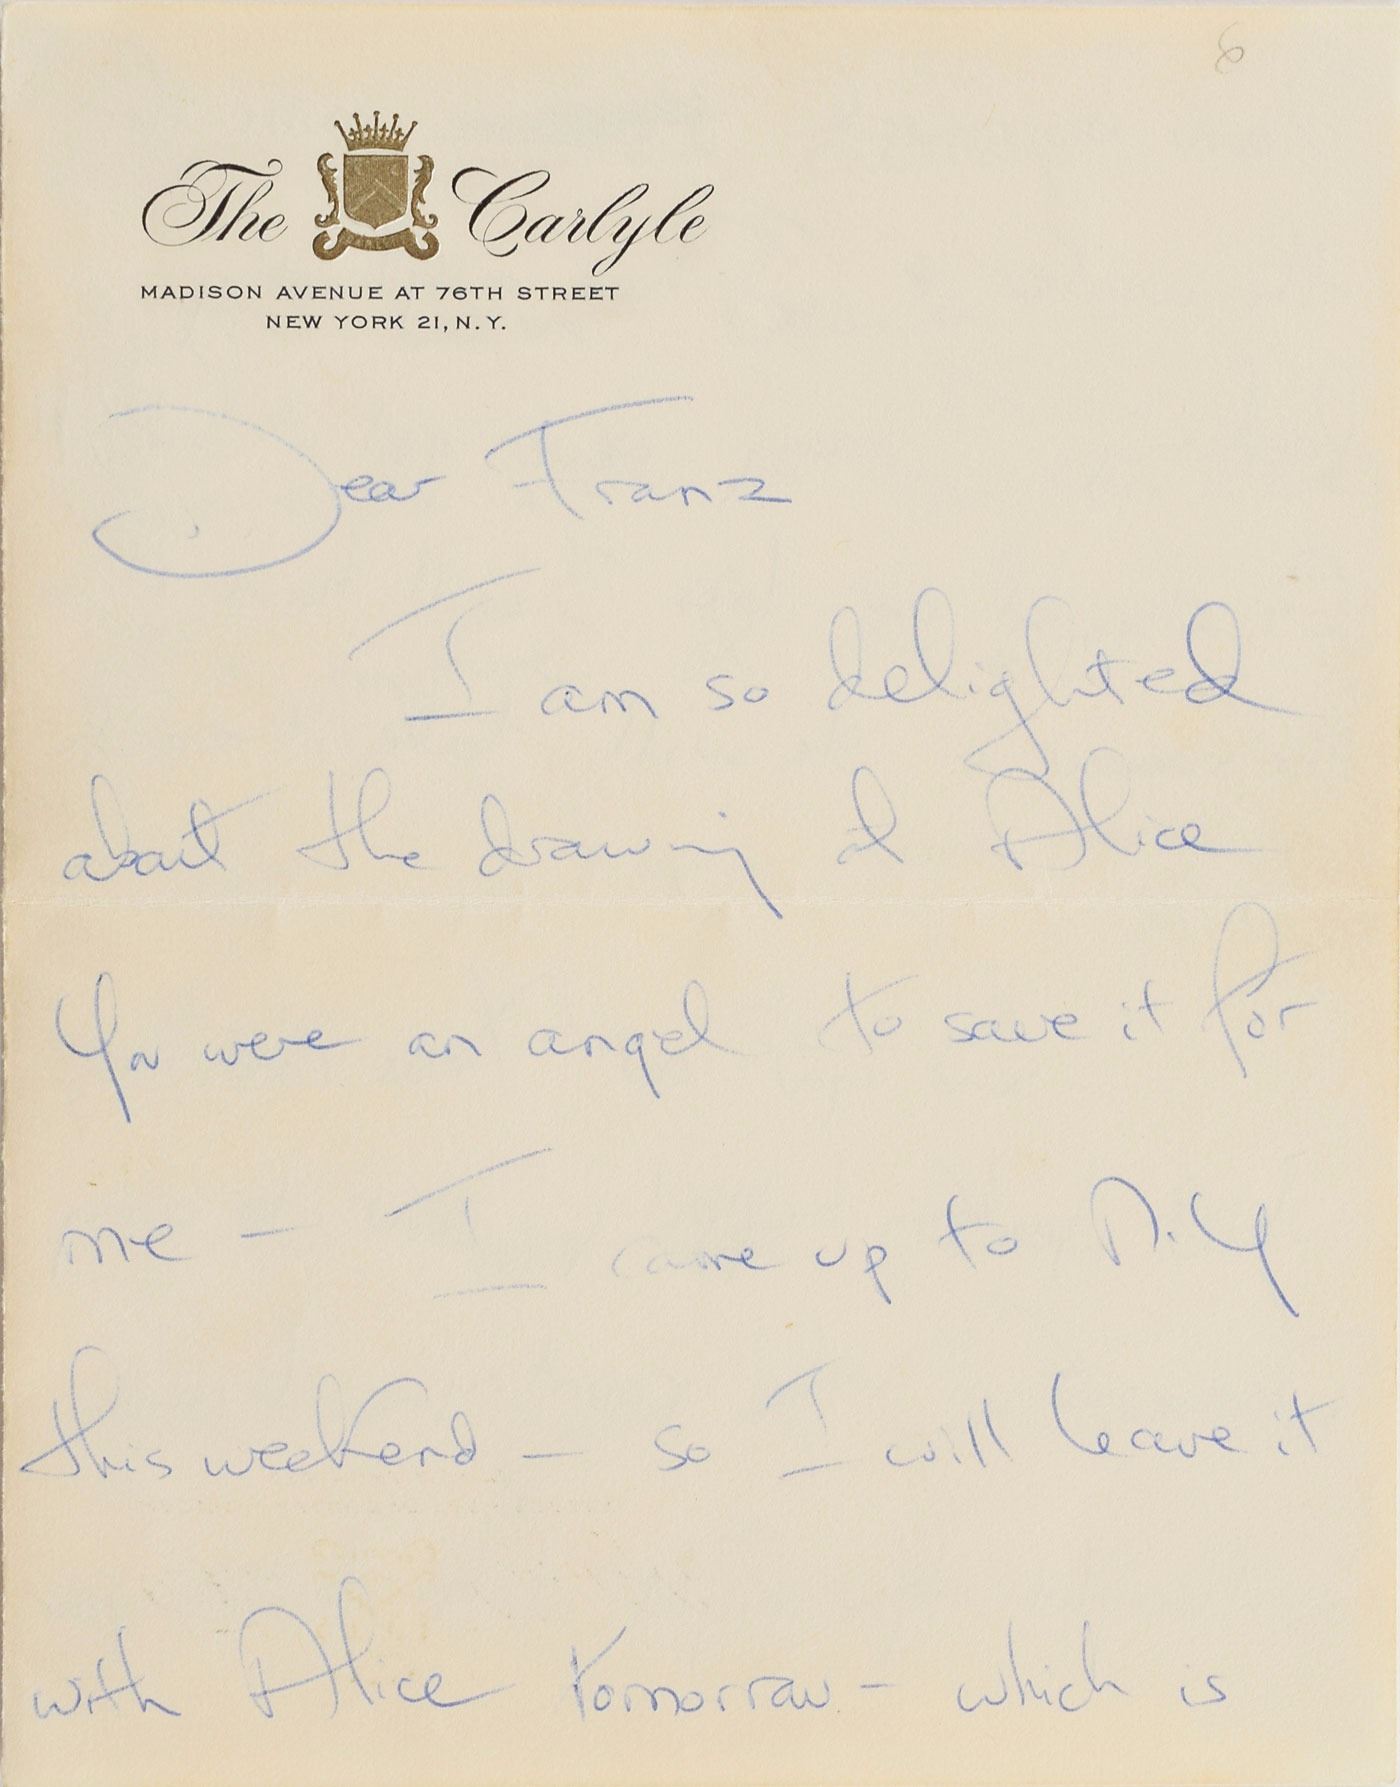 6
The Carlyle
MADISON AVENUE AT 76TH STREET
NEW YORK 21, N.Y.
Dear Franz
I am so delighted
about the drawing of Alice
You were an angel to save it for
me – I came up to N.Y
this weekend – so I will leave it
with Alice tomorrow – which is